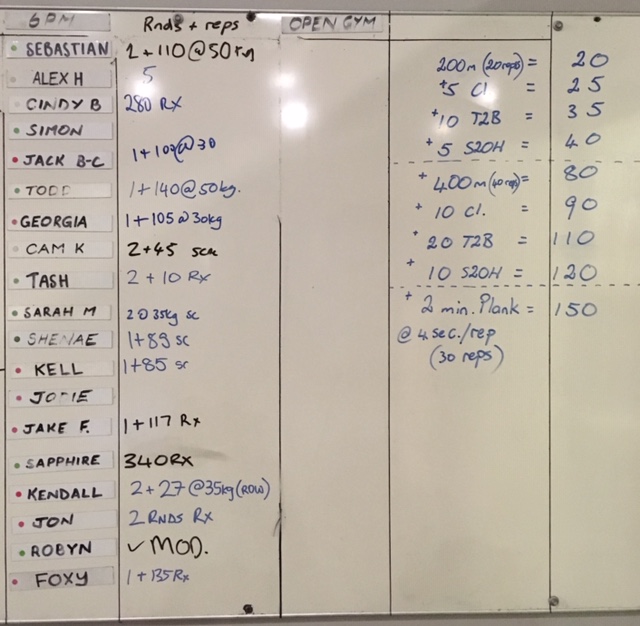 6PM Rnds + reps OPEN GYM
SEBASTIAN 2+110@50
ALEX H 5
CINDY B 280 RX
SIMON
JACK B-C 1+102@30
TODD 1+140@50kg.
GEORGIA 1+105@30kg
CAM K 2+45
TASH 2+10 Rx
SARAH M 2@35kg sc
SHENAE 1+89 sc
KELL 1+85 sc
JODIE
JAKE F. 1+117 Rx
SAPPHIRE 340RX
KENDALL 2+27@35kg(ROW)
JON 2 RNDS RX
ROBYN ✓ MOD.
FOXY 1+135Rx
200m (20reps) = 20
+5 Cl = 25
+10 T2B = 35
+5 S2OH = 40
+400m (40reps) = 80
+10 Cl. = 90
+20 T2B = 110
+10 S2OH = 120
+2 min. Plank = 150
@ 4 sec./rep
(30 reps)